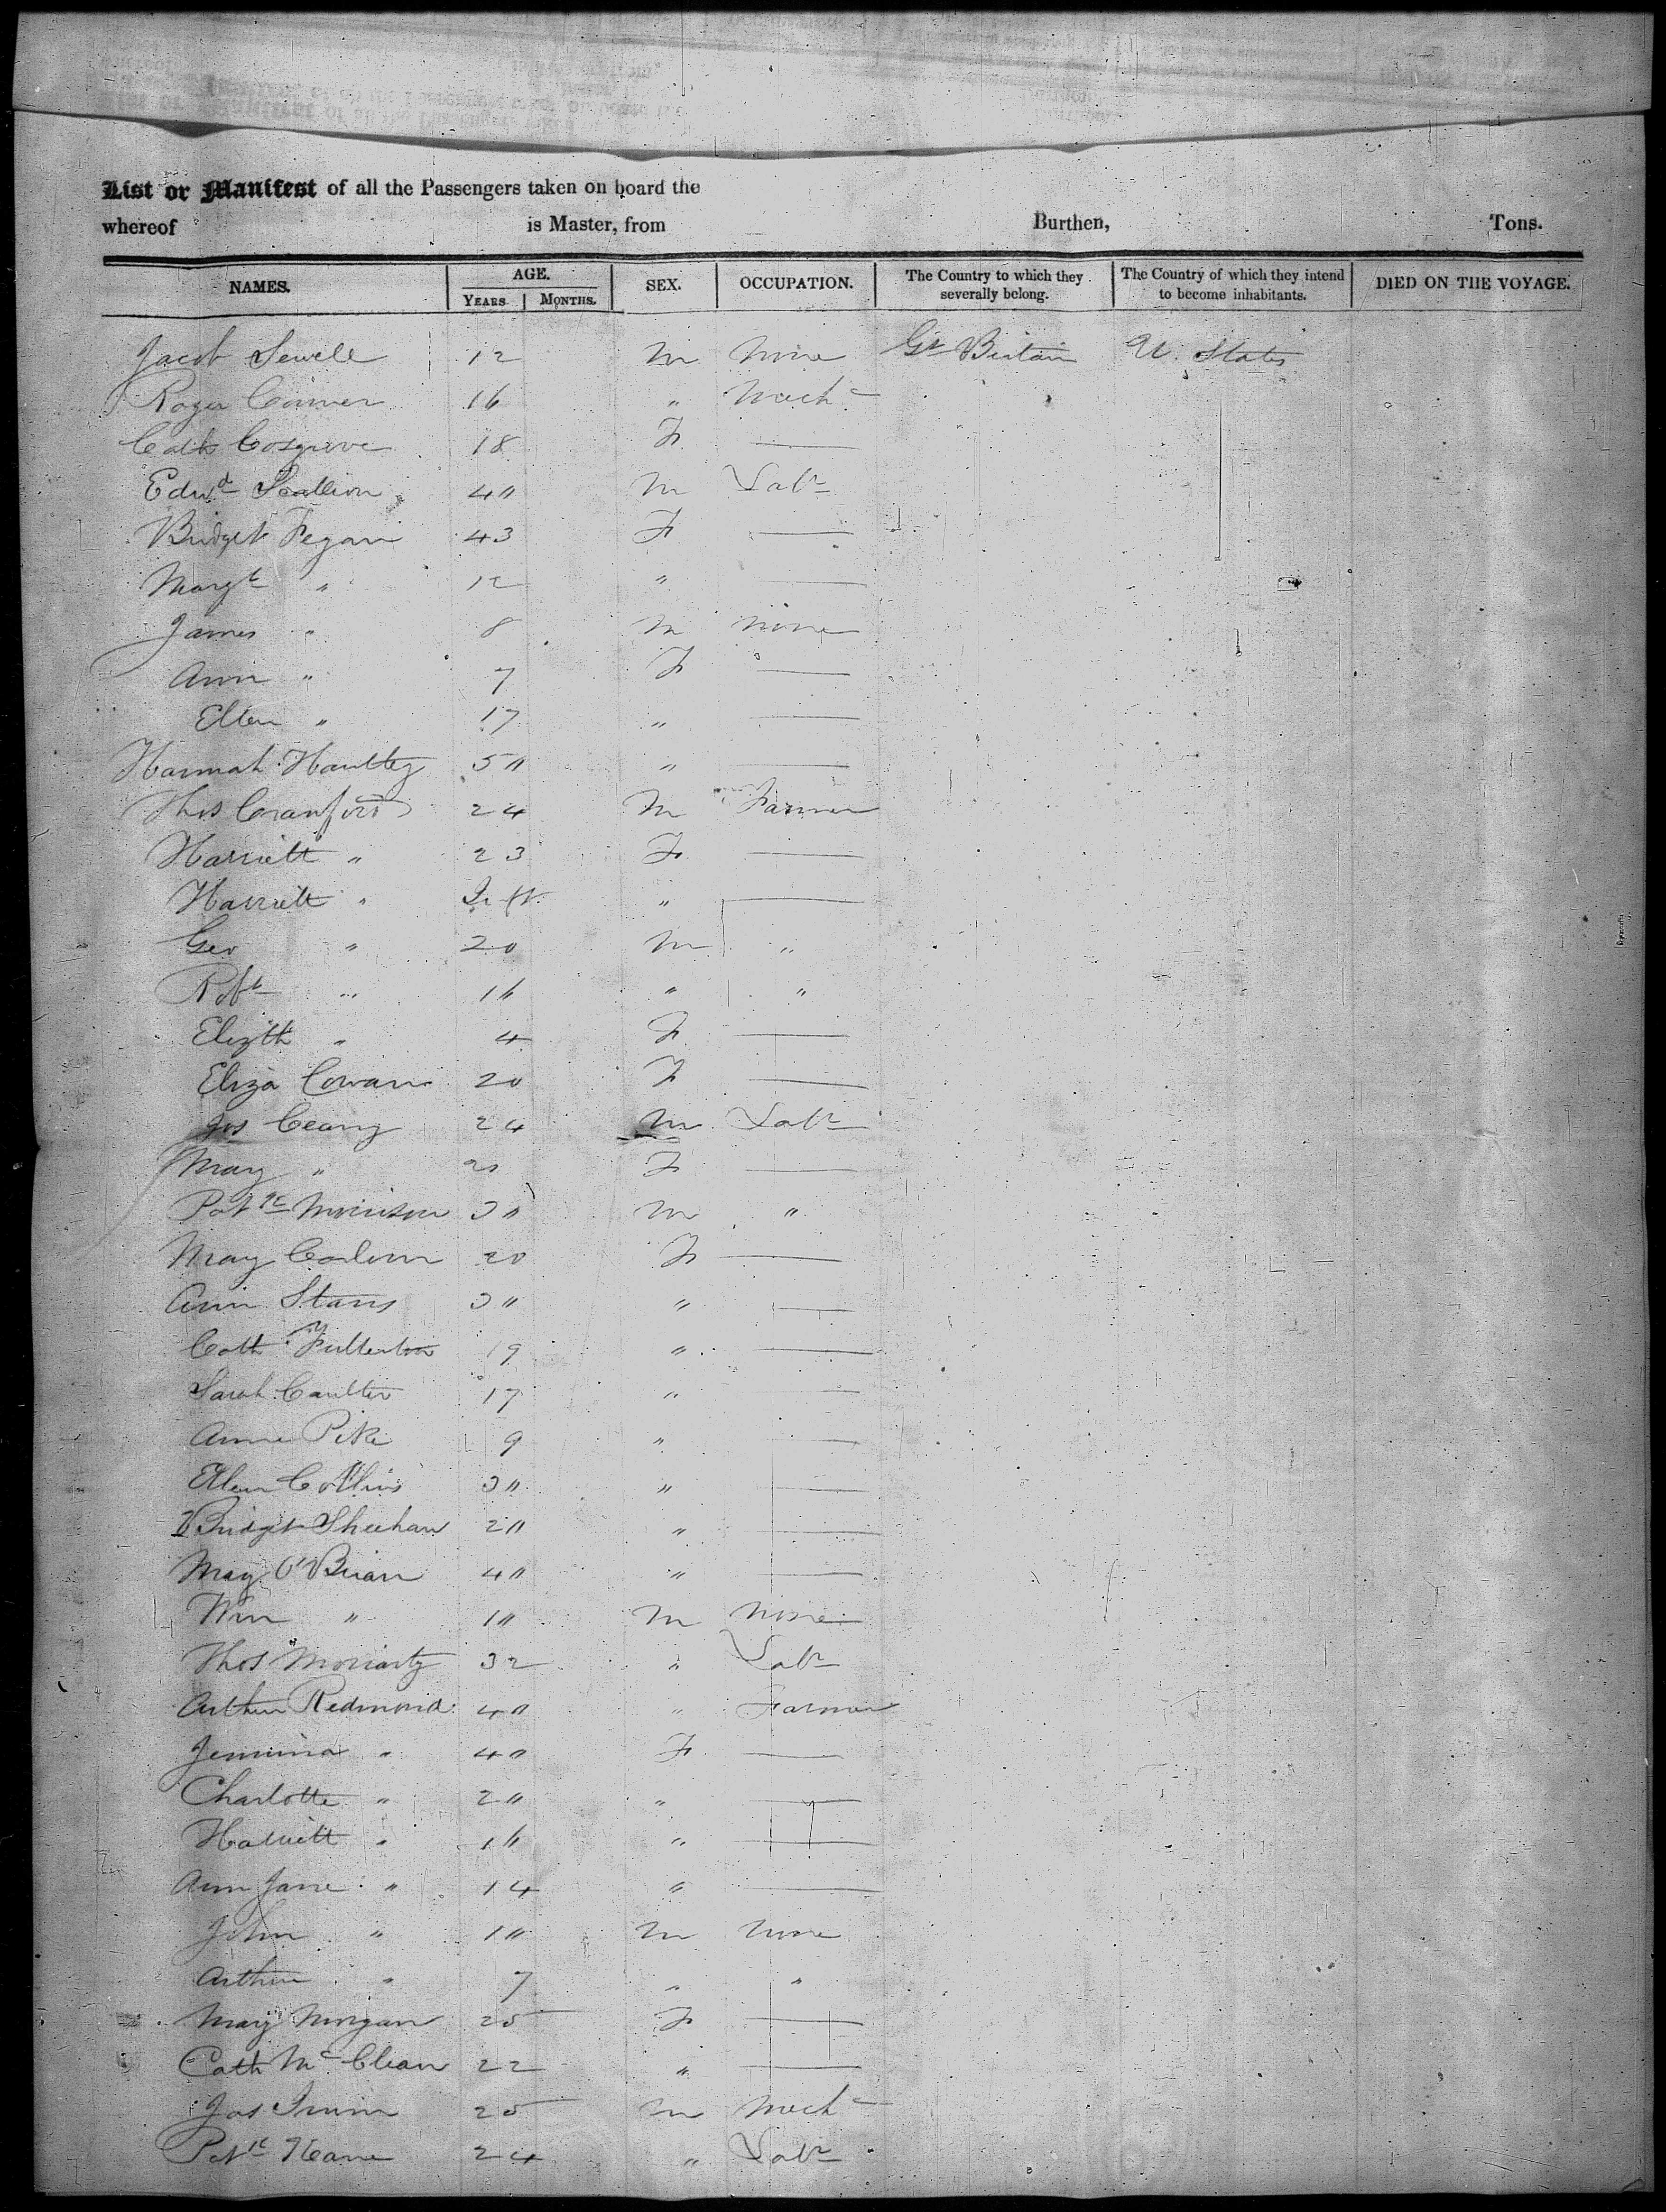 List or Manifest of all the Passengers taken on board the
whereof is Master, from Burthen, Tons.
NAMES. AGE. YEARS MONTHS. SEX. OCCUPATION. The Country to which they severally belong. The Country of which they intend to become inhabitants. DIED ON THE VOYAGE.
Jacob Sewell 12 M None Gt Britain U. States
Roger Conner 16 " Mech
Cath Cosgrove 18 F
Edwd Scallion 40 M Labr
Bridget Fegan 43 F
Margt " 12 "
James " 8 M None
Ann " 7 F
Ellen " 17 "
Hannah 50 "
Thos Cranford 24 M Farmer
Harriett " 23 F
Harriett " Inft "
Geo " 20 M "
Robt " 16 " "
Elizth " 4 F
Eliza Cowan 20 F
Jos 24 M Labr
Mary " 20 F
Patrk Morrison 30 M "
Mary 20 F
Ann 30 "
Cath Fullerton 19 "
Sarah Coulter 17 "
Anne Pike 9 "
Ellen Collins 30 "
Bridget Sheehan 20 "
Mary O'Brian 40 "
Wm " 10 M None
Thos Moriarty 32 " Labr
Arthur Redmond 40 " Farmer
Jemima " 40 F
Charlotte " 20 "
Harriett " 16 "
Ann Jane " 14 "
John " 10 M None
Arthur " 7 " "
Mary Morgan 25 F
Cath McClean 22 "
Jas Irwin 25 M Mech
Patk Keane 24 " Labr